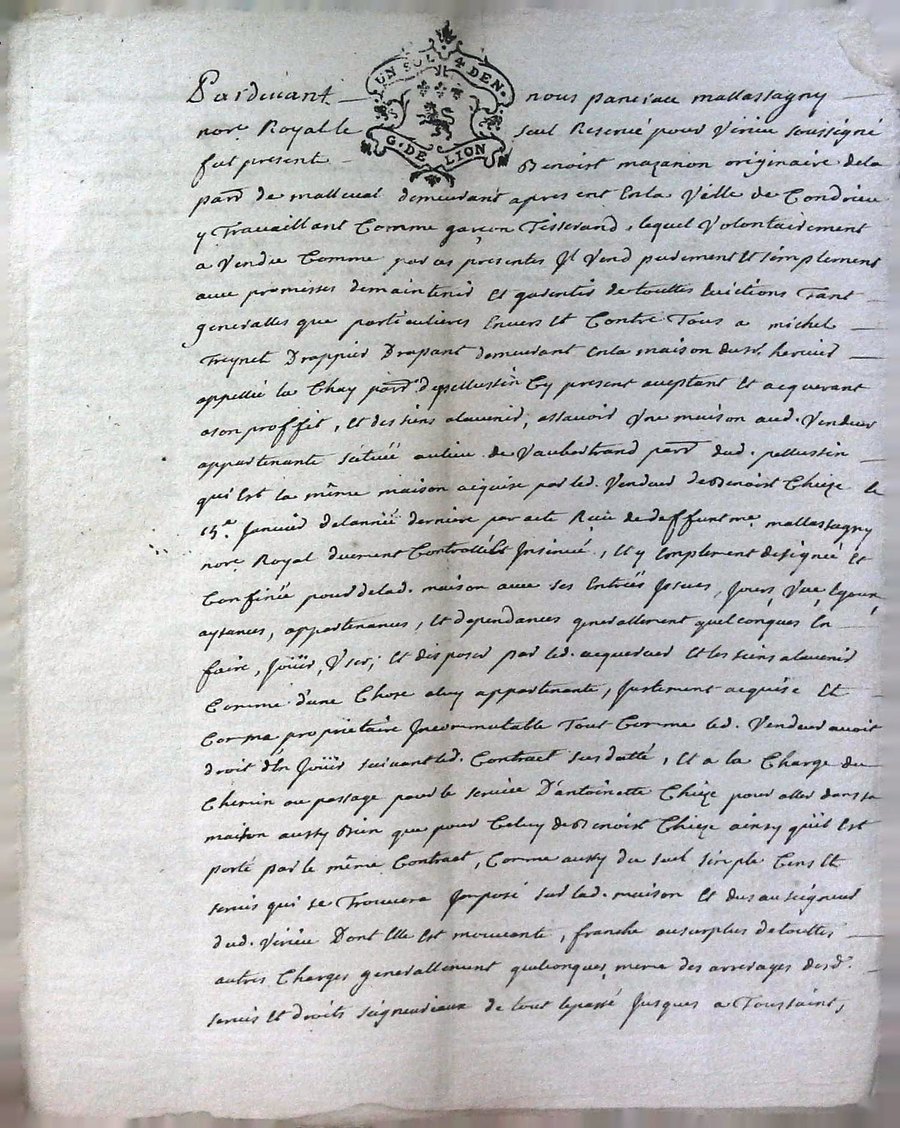 UN SOL 4 DEN.
G. DE LION
Pardevant nous pancrace mallassagny
nore Royal le seul Reservé pour Virieu soussigné
fut present Benoist mazanon originaire de la
parr de malleval demeurant apresent En la Ville de Condrieu
y Travaillant Comme garçon Tisserand, lequel Volontairement
a Vendu Comme par ces presentes Il Vend purement Et simplement
avec promesses de maintenir Et garentir de touttes Evictions Tant
generalles que particulieres Envers Et Contre Tous a michel
Freynet Drappier Drapant demeurant En la maison du sr.
appellée la Chay parr de pellussin Cy present aceptant Et acquerant
a son proffit, Et des siens a lavenir, assavoir Une maison aud. Vendeur
appartenante scituée au lieu de Vaubertrand parr dud. pellussin
qui Est la même maison acquise par led. Vendeur de Benoist Chieze le
15e. Janvier de lannée derniere par acte Receu de deffunt me. mallassagny
nore Royal duement Controllé Et Insinué, Et y Emplement designée Et
Confinée pour de lad. maison avec ses Entrées Issues, Jours, Vue,
aysances, appartenances, Et dependances generallement quelconques En
faire, Joüir, User, Et disposer par led. acquereur Et les siens a lavenir
Comme d'une Chose a luy appartenante, Justement acquise Et
Comme proprietaire Incommutable Tout Comme led. Vendeur avoit
droit d'En Joüir suivant led. Contract susdatté, Et a la Charge du
Chemin ou passage pour le service D'antoinette Chieze pour aller dans sa
maison aussy Bien que pour Celuy de Benoist Chieze ainsy qu'il Est
porté par le même Contract, Comme aussy du seul simple Cens Et
servis qui se Trouvera Imposé sur lad. maison Et du au seigneur
dud. Virieu Dont Elle Est mouvante, franche au surplus de touttes
autres Charges generallement quelconques, meme des arrerages desd.
servis Et droits seigneuriaux de tout le passé Jusques a Toussaints,